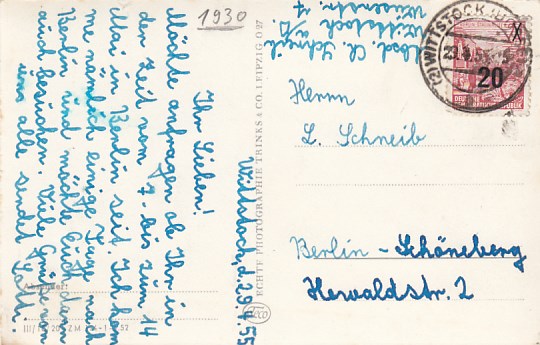 1930
Absd. Ch. Schneib
Wittstock a/D.
Wittstock, d. 29.4.55
Ihr Lieben!
Möchte anfragen ob Ihr in
der Zeit vom 7 - bis zum 14
Mai in Berlin seit. Ich kom
me nämlich einige Tage nach
Berlin und möchte Euch dann
auch besuchen. Viele Grüße an
uns alle sendet
Absender:
III/18 203 ZM X-1-52
ECHTE PHOTOGRAPHIE TRINKS & CO. LEIPZIG O 27
(2) WITTSTOCK
20
DEUTSCHE
DEMOKRATISCHE REPUBLIK
Herrn
L. Schneib
Berlin - Schöneberg
Hewaldstr. 2